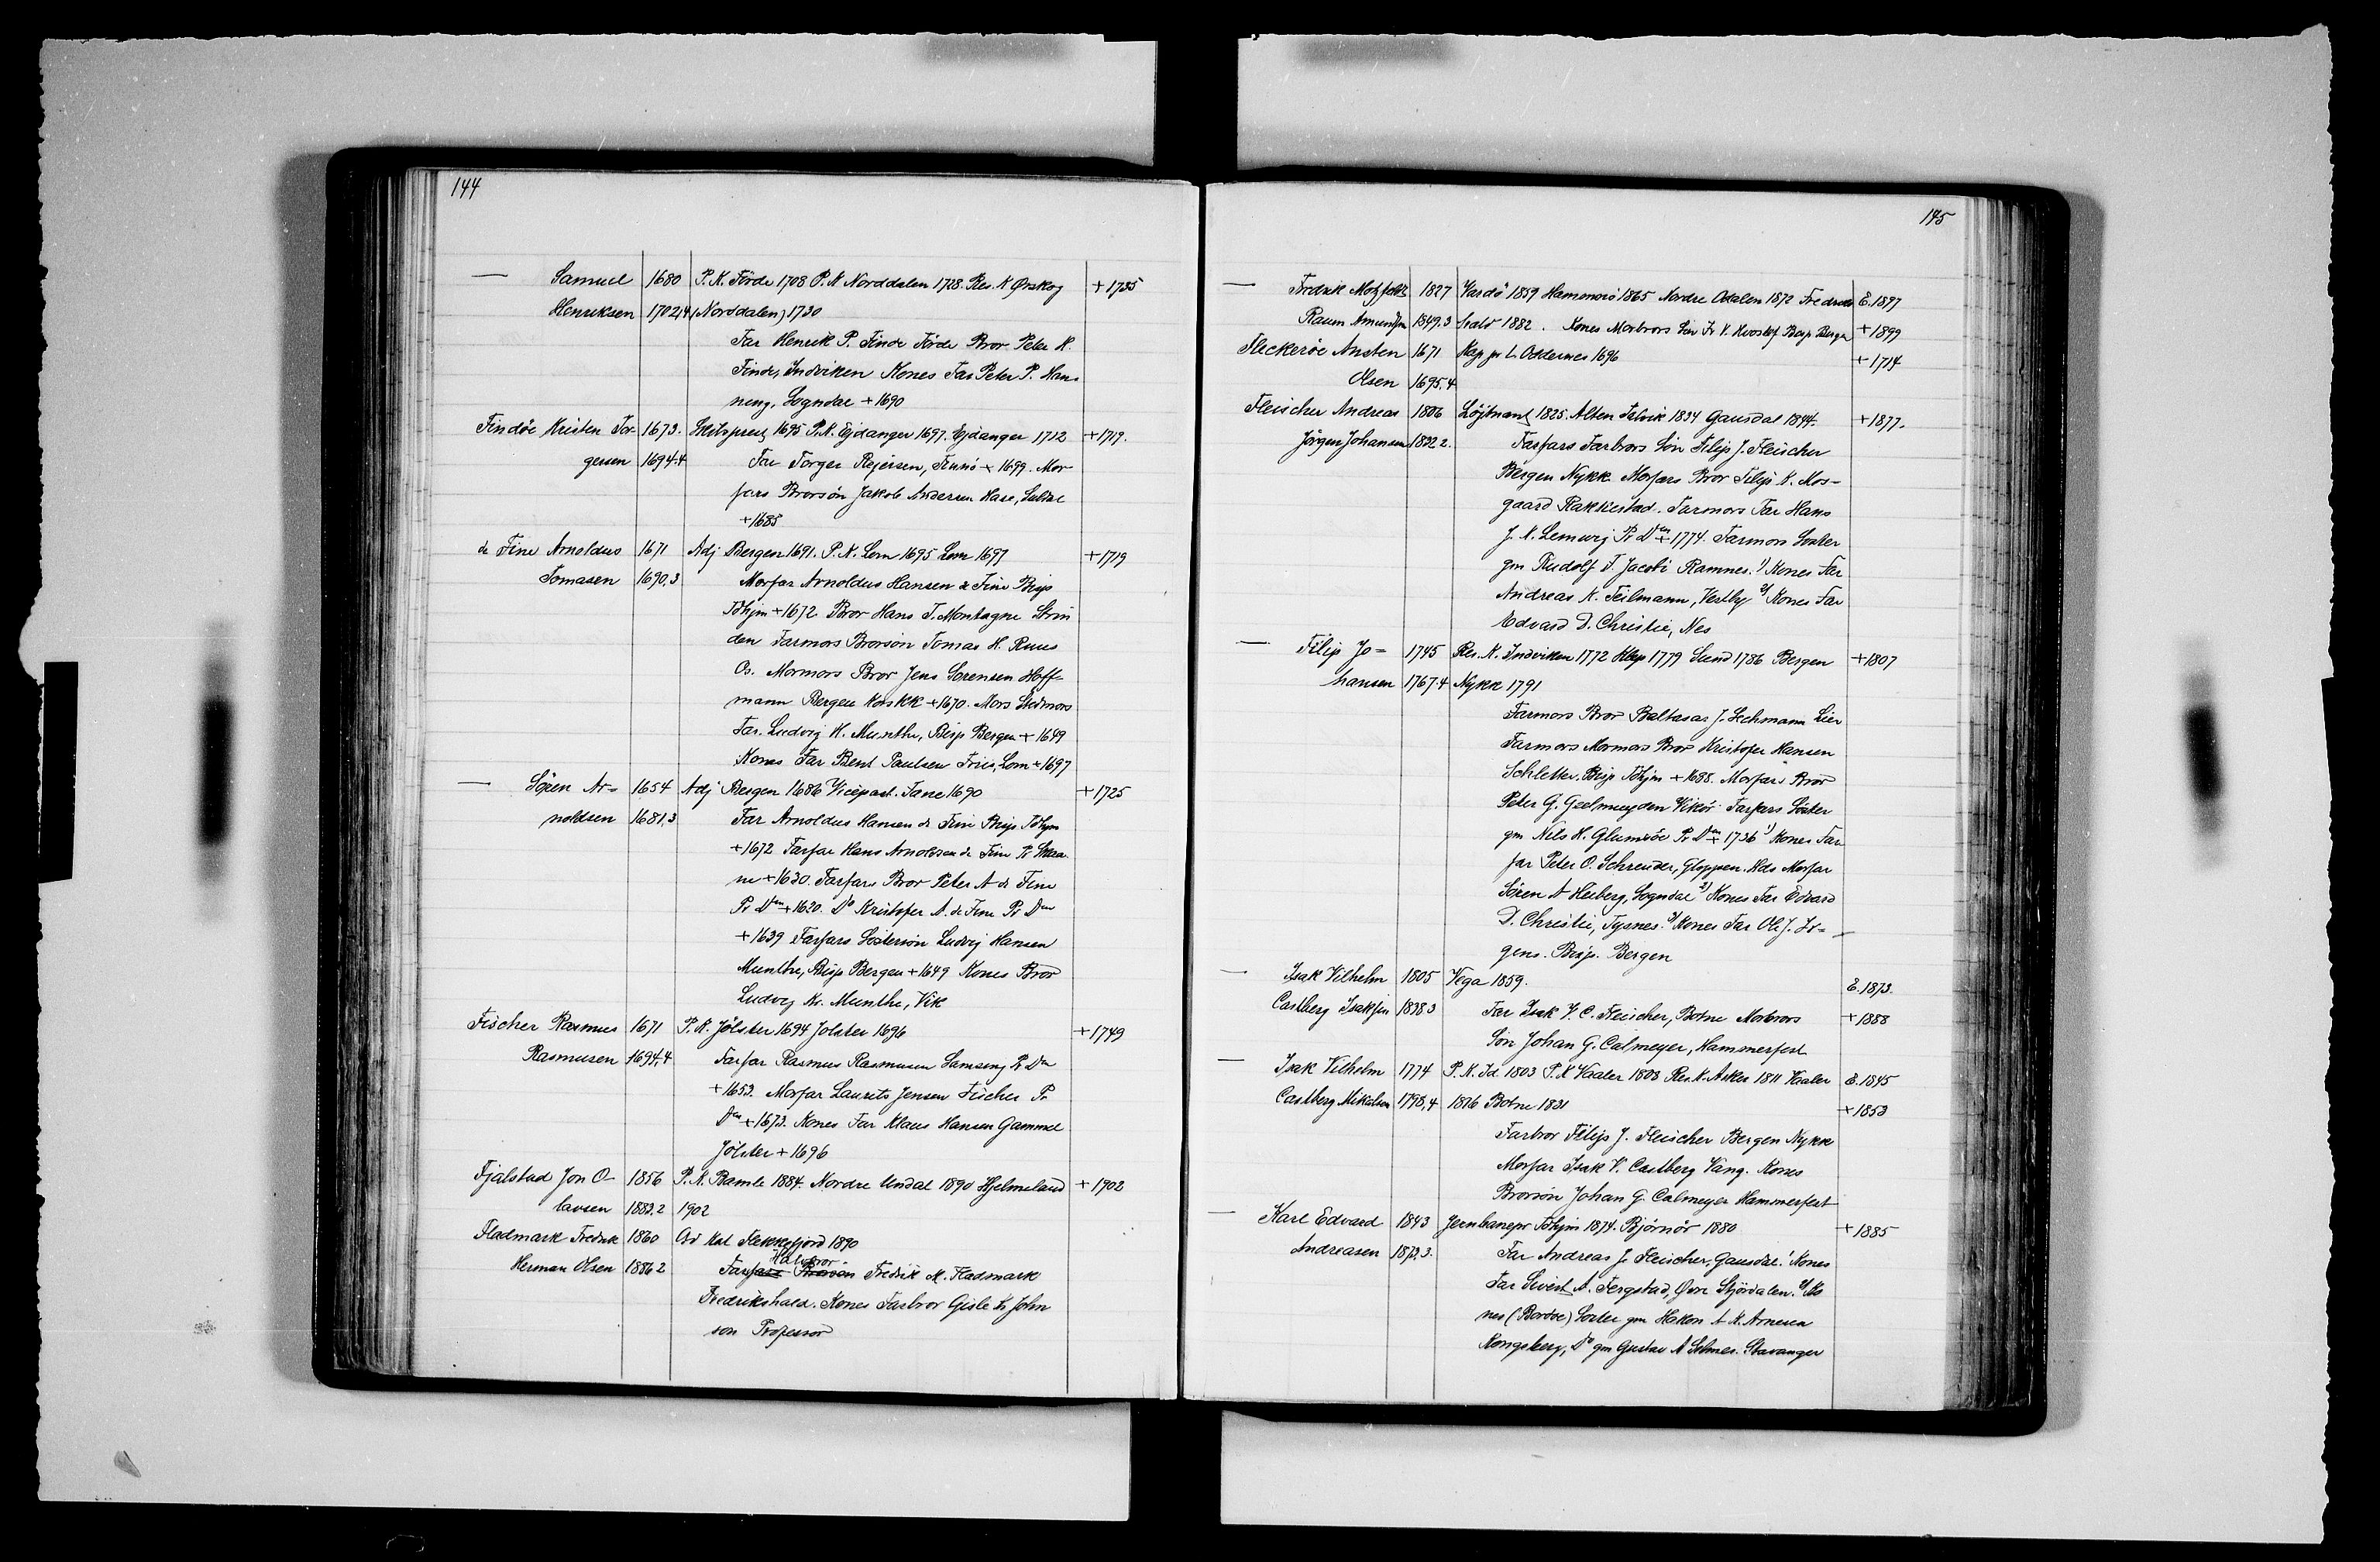 144
— Samuel 1680 P. K. Förde 1708 P. K Norddalen 1728. Res. K Ørskog +1735
Henriksen 1702,4 (Norddalen) 1730
Far Henrik P. Finde Förde Bror Peter H.
Finde, Indviken Kones Far Peter P. Han-
ning, Sogndal +1690
Findöe Kristen Tor- 1673. 1695 P.K. Ejdanger 1697. Ejdanger 1712 +1719.
gersen 1694.4 Far Torger Rejersen, Finnö + 1699. Mor-
fars Brorsön Jakob Andersen Hase, Suldal
+1685
de Fine Arnoldus 1671 Adj Bergen 1691. P. K. Lom 1695 Lom 1697 +1719
Tomasen 1690,3 Morfar Arnoldus Hansen de Fine Bisp
Tdhjm +1672 Bror Hans T. Montagne Strin
den Farmors Brorsön Tomas H. Ruus
Os. Mormors Bror Jens Sorensen Hoff-
mann Bergen Korskk +1670. Mors Stedmors
Far. Ludvig H. Munthe, Bisp Bergen + 1649
Kones Far Bent Paulsen Friis, Lom +1697
— Sören Ar- 1654 Adj Bergen 1686 Vicepast. Fane 1690 +1725
noldsen 1681,3 Far Arnoldus Hansen de Fine Bisp Tdhjm
+1672 Farfar Hans Arnoldsen de Fine Pr
+1630. Farfars Bror Peter A de Fine
Pr Den +1620. Do Kristofer A. de Fine Pr Den
+1639 Farfars Sostersön Ludvig Hansen
Munthe, Bisp Bergen +1649 Kones Bror
Ludvig Kr. Munthe, Vik
Fischer Rasmus 1671 P. K. Jölster 1694 Jolster 1696 +1749
Rasmusen 1694,4 Farfar Rasmus Rasmusen Samsing Pr Den
+1653. Morfar Laurits Jensen Fischer Pr
Den +1673. Kones Far Klaus Hansen Gammel
Jölster +1696
Fjalstad Jon O- 1856 P. K. Bamle 1884. Nordre Undal 1890 Hjelmeland +1902
lavsen 1882.2 1902
Fladmark Fredrik 1860 Flekkefjord 1890
Halvbror
Herman Olsen 1886 2 Farfars Brorsön Fredrik M. Fladmark
Fredrikshald. Kones Farbror Gisle Kr John
son Professor
145
— Fredrik Motzfeldt 1827 Vardö 1859 Hammerö 1865 Nordre Odalen 1872 Fredriks E. 1897
Raum Amundsen 1849.3 hald 1882. Kones Morbrors Sön Fr V. Hvoslef Bisp Bergen +1899
Fleckeröe Ansten 1671 Kap pr L Oddernes 1696 +1714
Olsen 1695.4
Fleischer Andreas 1806 Löjtnant 1825. Alten Talvik 1834 Gausdal 1844. +1877.
Jörgen Johansen 1822 2. Farfars Farbrors Sön Filip J. Fleischer
Bergen Nykk. Morfars Bror Filip K. Mos-
gaard Rakkestad. Farmors Far Hans
J. K. Lemvig Pr Den +1774. Farmors Soster
gm Rudolf F. Jacobi Ramnes. 1) Kones Far
Andreas K. Teilmann, Vestby 2) Kones Far
Edvard D. Christie, Nes
— Filip Jo- 1745 Res. K. Indviken 1772 Klep 1779 Sund 1786 Bergen +1807
hansen 1767.4 Nykk 1791
Farmors Bror Baltasar J. Lechmann Lier
Farmors Mormors Bror Kristofer Hansen
Schletter, Bisp Tdhjm +1688. Morfars Bror
Peter G. Geelmuyden Vikör. Farfars Söster
gm Nils H. Glumsöe Pr Den +1736 1) Kones Far-
far Peter O. Schreuder, Gloppen. Hds Morfar
Sören A Heiberg, Sogndal 2) Kones Far Edvard
D. Christie, Tysnes. 3) Kones Far Ole J. Ir-
gens. Bisp. Bergen
— Isak Vilhelm 1805 Vega 1859. E. 1873.
Castberg Isaksen 1838 3 Far Isak V. C. Fleischer, Botne Morbrors +1888
Sön Johan G. Calmeyer, Hammerfest
— Isak Vilhelm 1774 P. K. Id. 1803 P. K Vaaler 1808 Res. K. Asker 1811 Vaaler E. 1845
Castberg Mikalsen 1798,4 1816 Botne 1831 +1853
Farbror Filip J. Fleischer Bergen Nykk
Morfar Isak V. Castberg Vang. Kones
Brorsön Johan G. Calmeyer Hammerfest
— Karl Edvard 1843 Jernbanepr Tdhjm 1874. Björnör 1880 +1885
Andreasen 1872,3. Far Andreas J. Fleischer, Gausdal. 1 Kones
Far Sivert A. Fergstad, Øvre Stjördalen. 2) Ko
nes (Bordoe) Soster gm Hakon A K. Arnesen
Kongsberg, Do gm Gustav A Selmer. Stavanger